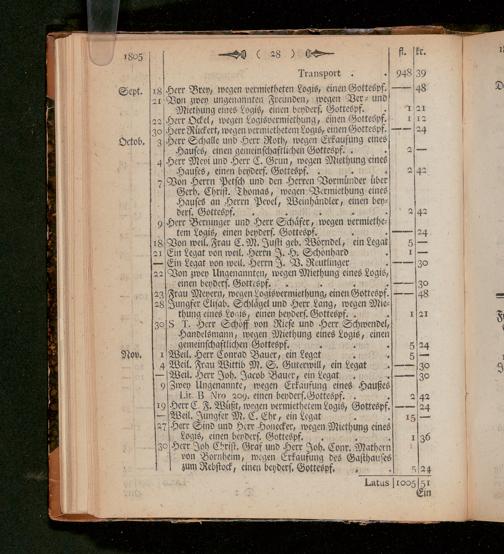 1805 ( 28 ) fl. kr.
Transport . . 948 39
Sept. 18 Herr Brey, wegen vermietheten Logis, einen Gottespf. — 48
21 Von zwey ungenannten Freunden, wegen Ver- und
Miethung eines Logis, einen beyders. Gottespf. . 1 21
22 Herr Ockel, wegen Logisvermiethung, einen Gottespf. 1 12
30 Herr Rückert, wegen vermiethetem Logis, einen Gottespf. — 24
Octob. 3 Herr Schalle und Herr Roth, wegen Erkaufung eines
Hauses, einen gemeinschaftlichen Gottespf. . . 2 —
4 Herr Meyi und Herr C. Grun, wegen Miethung eines
Hauses, einen beyders. Gottespf. . . . 2 42
7 Von Herrn Petsch und den Herren Vormünder über
Gerh. Christ. Thomas, wegen Vermiethung eines
Hauses an Herrn Pevel, Weinhändler, einen bey-
ders. Gottespf. . . . . 2 42
9 Herr Berninger und Herr Schäfer, wegen vermiethe-
tem Logis, einen Gottespf. . . . — 24
18 Von weil. Frau C. M. Justi geb. Wörndel, ein Legat 5 —
21 Ein Legat von weil. Herrn J. H. Schönhard . 1 —
— Ein Legat von weil. Herrn J. V. Reutlinger . — 30
22 Von zwey Ungenannten, wegen Miethung eines Logis,
einen beyders. Gottespf. . . . — 30
23 Frau Meyern, wegen Logisvermiethung, einen Gottespf. — 48
28 Jungfer Elisab. Schlägel und Herr Lang, wegen Mie-
thung eines Logis, einen beyders. Gottespf. . 1 21
30 S T. Herr Schöff von Riese und Herr Schwendel,
Handelsmann, wegen Miethung eines Logis, einen
gemeinschaftlichen Gottespf. . . . 5 24
Nov. 1 Weil. Herr Conrad Bauer, ein Legat . . 5 —
4 Weil. Frau Wittib M. S. Guterwill, ein Legat . — 30
— Weil. Herr Joh. Jacob Bauer, ein Legat . — 30
9 Zwey Ungenannte, wegen Erkaufung eines Haußes
Lit. B Nro 209. einen beyders. Gottespf. . . 2 42
19 Herr C. F. Wüst, wegen vermiethetem Logis, Gottespf. — 24
— Weil. Jungfer M. C. Ehr, ein Legat . . 15 —
27 Herr Sind und Herr Honecker, wegen Miethung eines
Logis, einen beyders. Gottespf. . . . 1 36
30 Herr Joh Christ. Graf und Herr Joh. Conr. Mathorn
von Bornheim, wegen Erkaufung des Gasthauses
zum Rebstock, einen beyders. Gottespf. . . 5 24
Latus 1005 51
Ein